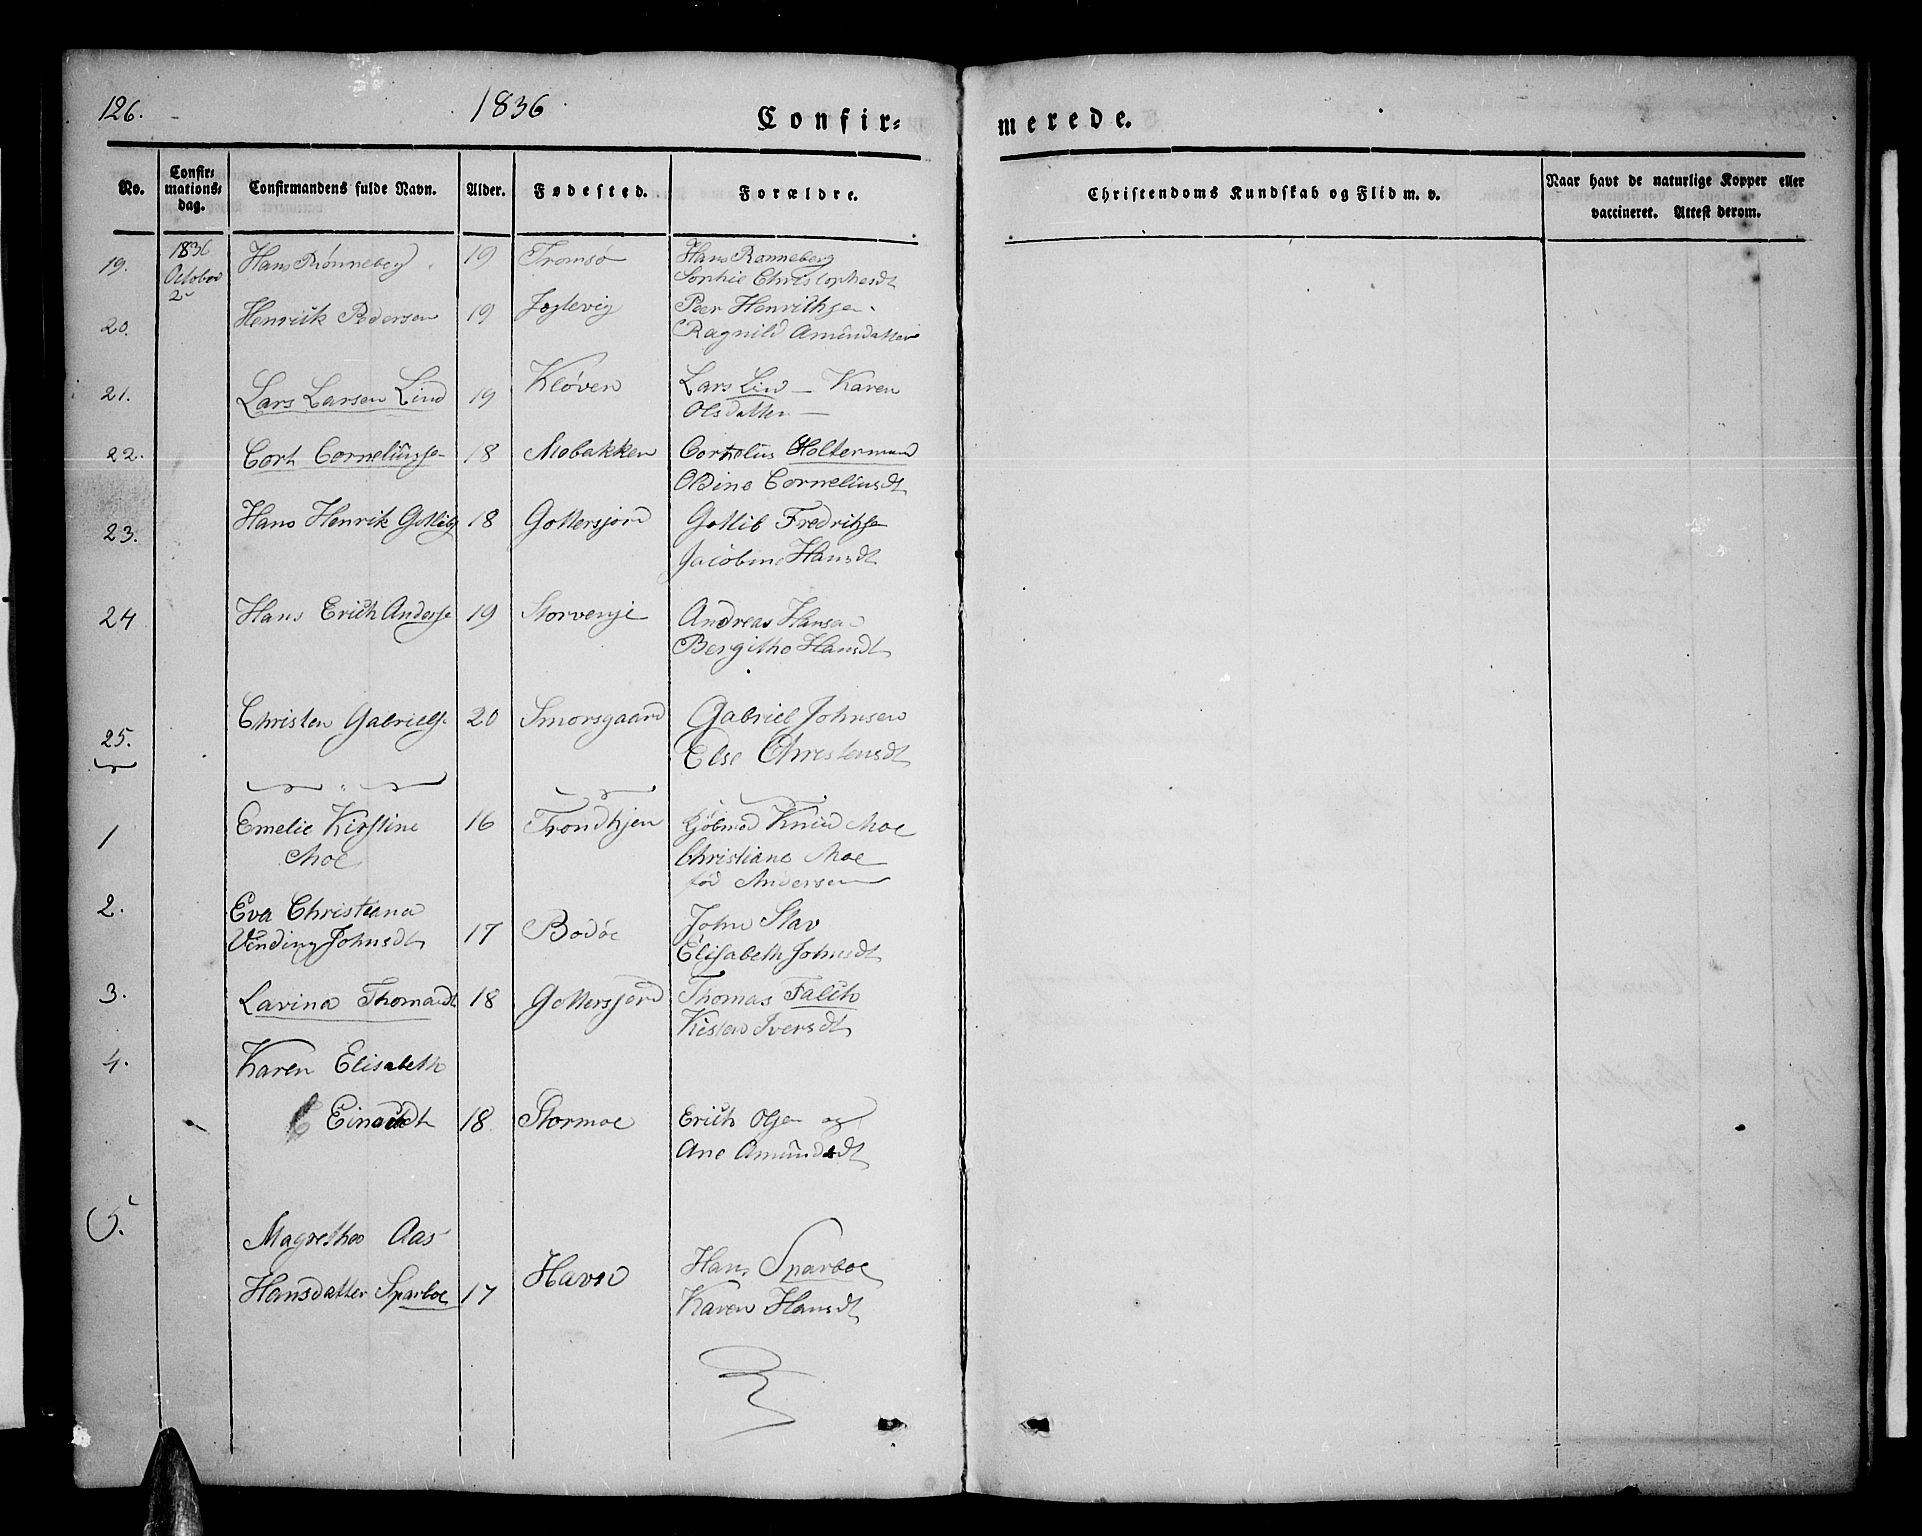 126.
1836
Confir-
merede.
No.
Confir-
mations-
dag.
Confirmandens fulde Navn.
Alder.
Fødested.
Forældre.
Christendoms Kundskab og Flid m. v.
Naar havt de naturlige Kopper eller
vaccineret. Attest derom.
19. 1836 Hans Rønneberg 19 Tromsø Hans Rønneberg
October Sophie Christophersdt
2
20. Henrik Pedersen 19 Peer Henrikse
Ragnild Amundatter
21. Lars Larsen Lind 19 Kløven Lars Lind - Karen
Olsdatter -
22. Cort Corneliusse 18 Mobakken Cornelius Holtermand
Oldine Corneliusdt
23. Hans Henrik Gotlib 18 Gottersjord Gotlib Fredrikse
Jacobine Hansdt
24 Hans Erich Anderse 19 Storvenje Andreas Hansen
Bergithe Hansdt
25. Christen Gabrielse 20 Smorsgaard Gabriel Johnsen
Else Christensdt
1 Emelie Kirstine 16 Trondhjem Kjøbmd Knud Moe
Moe Christiane Moe
fød Andersen
2. Eva Christiana John Stav
Johnsdt 17 Bodøe Elisabeth Johnsdt
3. Lavina Thomasdt 18 Gottersjord Thomas Falch
Iversdt
4. Karen Elisabeth
18 Stormoe Erich Olsen og
Ane Amundsdt
5. Magrethe Aas
Hansdatter Sparboe 17 Havn Hans Sparboe
Karen Hansdt